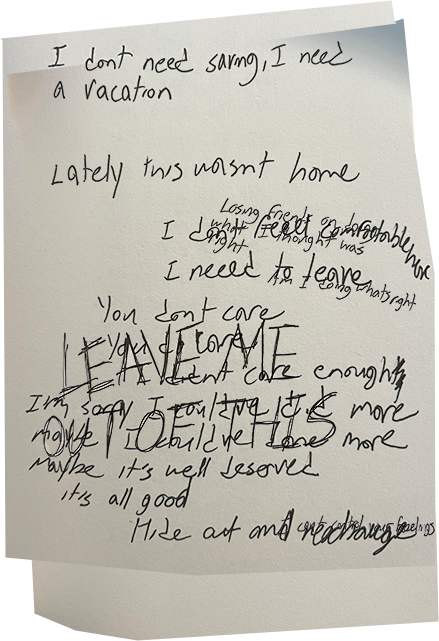 I dont need saving, I need
a vacation
Lately this wasnt home
Losing friends
what I thought was
right
I don't feel comfortable here
I neeed to leave
Am I doing whats right
You dont care
You do care
LEAVE ME
I didnt care enough
I'm sorry I could've did more
OUT OF THIS
maybe I could've done more
Maybe it's well deserved
it's all good
Hide out and recharge
I cant control your feelings